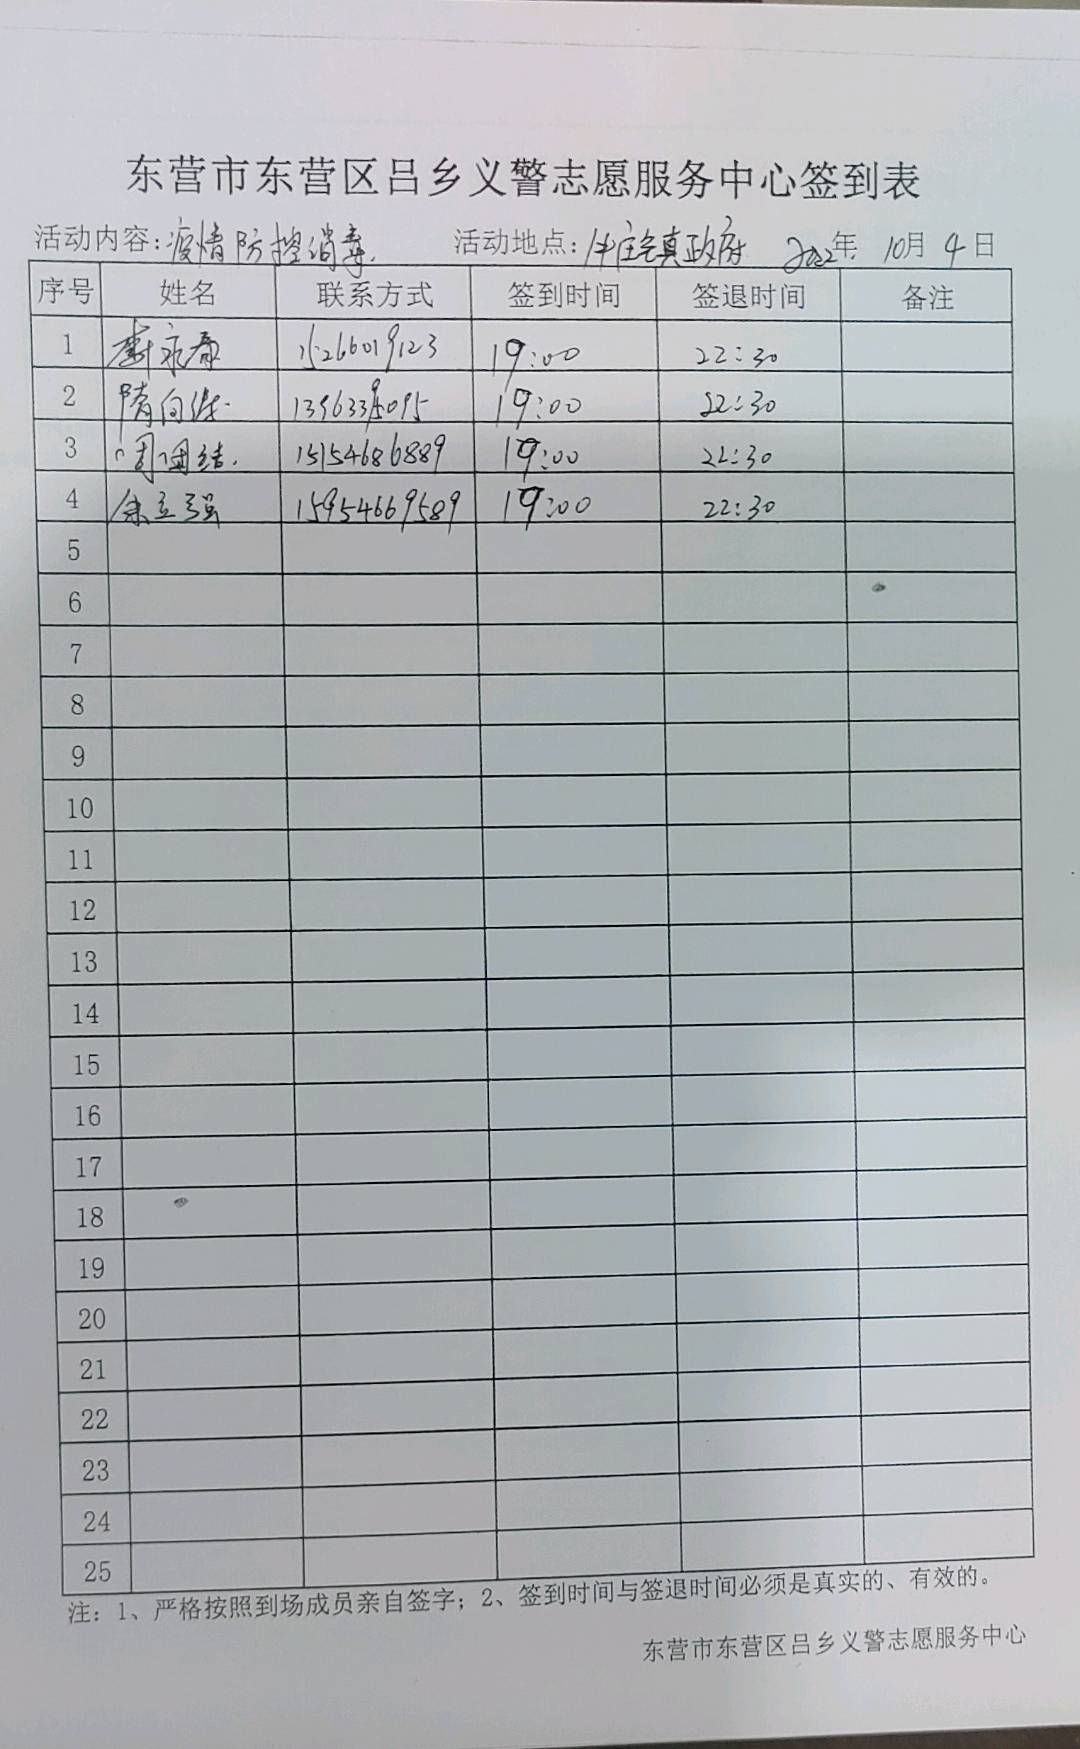 东营市东营区吕乡义警志愿服务中心签到表
活动内容:疫情防控消毒. 活动地点:牛庄镇政府 2022年 10月 4日
序号 姓名 联系方式 签到时间 签退时间 备注
1 永春 15266019123 19:00 22:30
2 隋向 19:00 22:30
3 周团结. 15154686889 19:00 22:30
4 徐立强 15954669589 19:00 22:30
5
6
7
8
9
10
11
12
13
14
15
16
17
18
19
20
21
22
23
24
25
注：1、严格按照到场成员亲自签字；2、签到时间与签退时间必须是真实的、有效的。
东营市东营区吕乡义警志愿服务中心